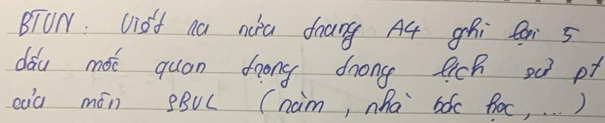 BTVN: Viết ra nửa trang A4 ghi lại 5
dấu mốc quan trọng trong lịch sử pt
của môn SBVL (năm, nhà bác học, ...)